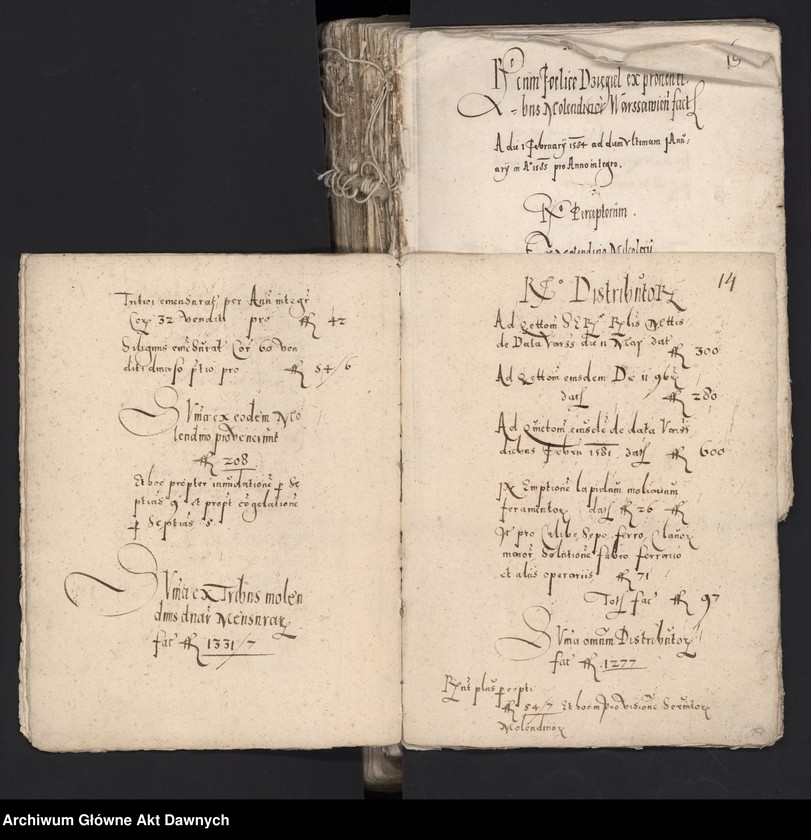 16
enim Foelice Dziegiel ex proventi
bus Molendinor Warssavien fact
A die 1 February 1584 ad diem Ultimam Janu
ary in A° 1585 pro Anno integro.
R° Perceptorum.
Ex Molendino
Tritici emensurat per Annu integr
Cor 32 vendit pro ffl 42
Siliginis emensurat Cor 60 ven
dit diverso ptio pro ffl 54/6
Summa ex eodem Mo
lendino provenerunt
ffl 208
Et hoc propter inundatione p Se
ptias 9 et propt cogelatione
p Septias 5
Summa ex Tribus molen
dinis duar Mensurar
fac ffl 1331/7
14
R° Distributor
Ad
de Data Varss die 11 Maj dat
ffl 300
Ad eiusdem Die 11 9br
dat ffl 280
Ad Quietom eiusde de data Vars
diebus Febru 1581. dat ffl 600
Emptione lapidum molarium
feramentor dat ffl 26
It pro Calibe, Sepo, ferro, Clavor
maior Solutione fabro ferrario
et aliis operariis ffl 71
Tot fac ffl 97
Summa omnium Distributor
fac ffl 1277
plus
ffl 54/7 Et hoc in provisione Servitor
Molendinor
Archiwum Główne Akt Dawnych